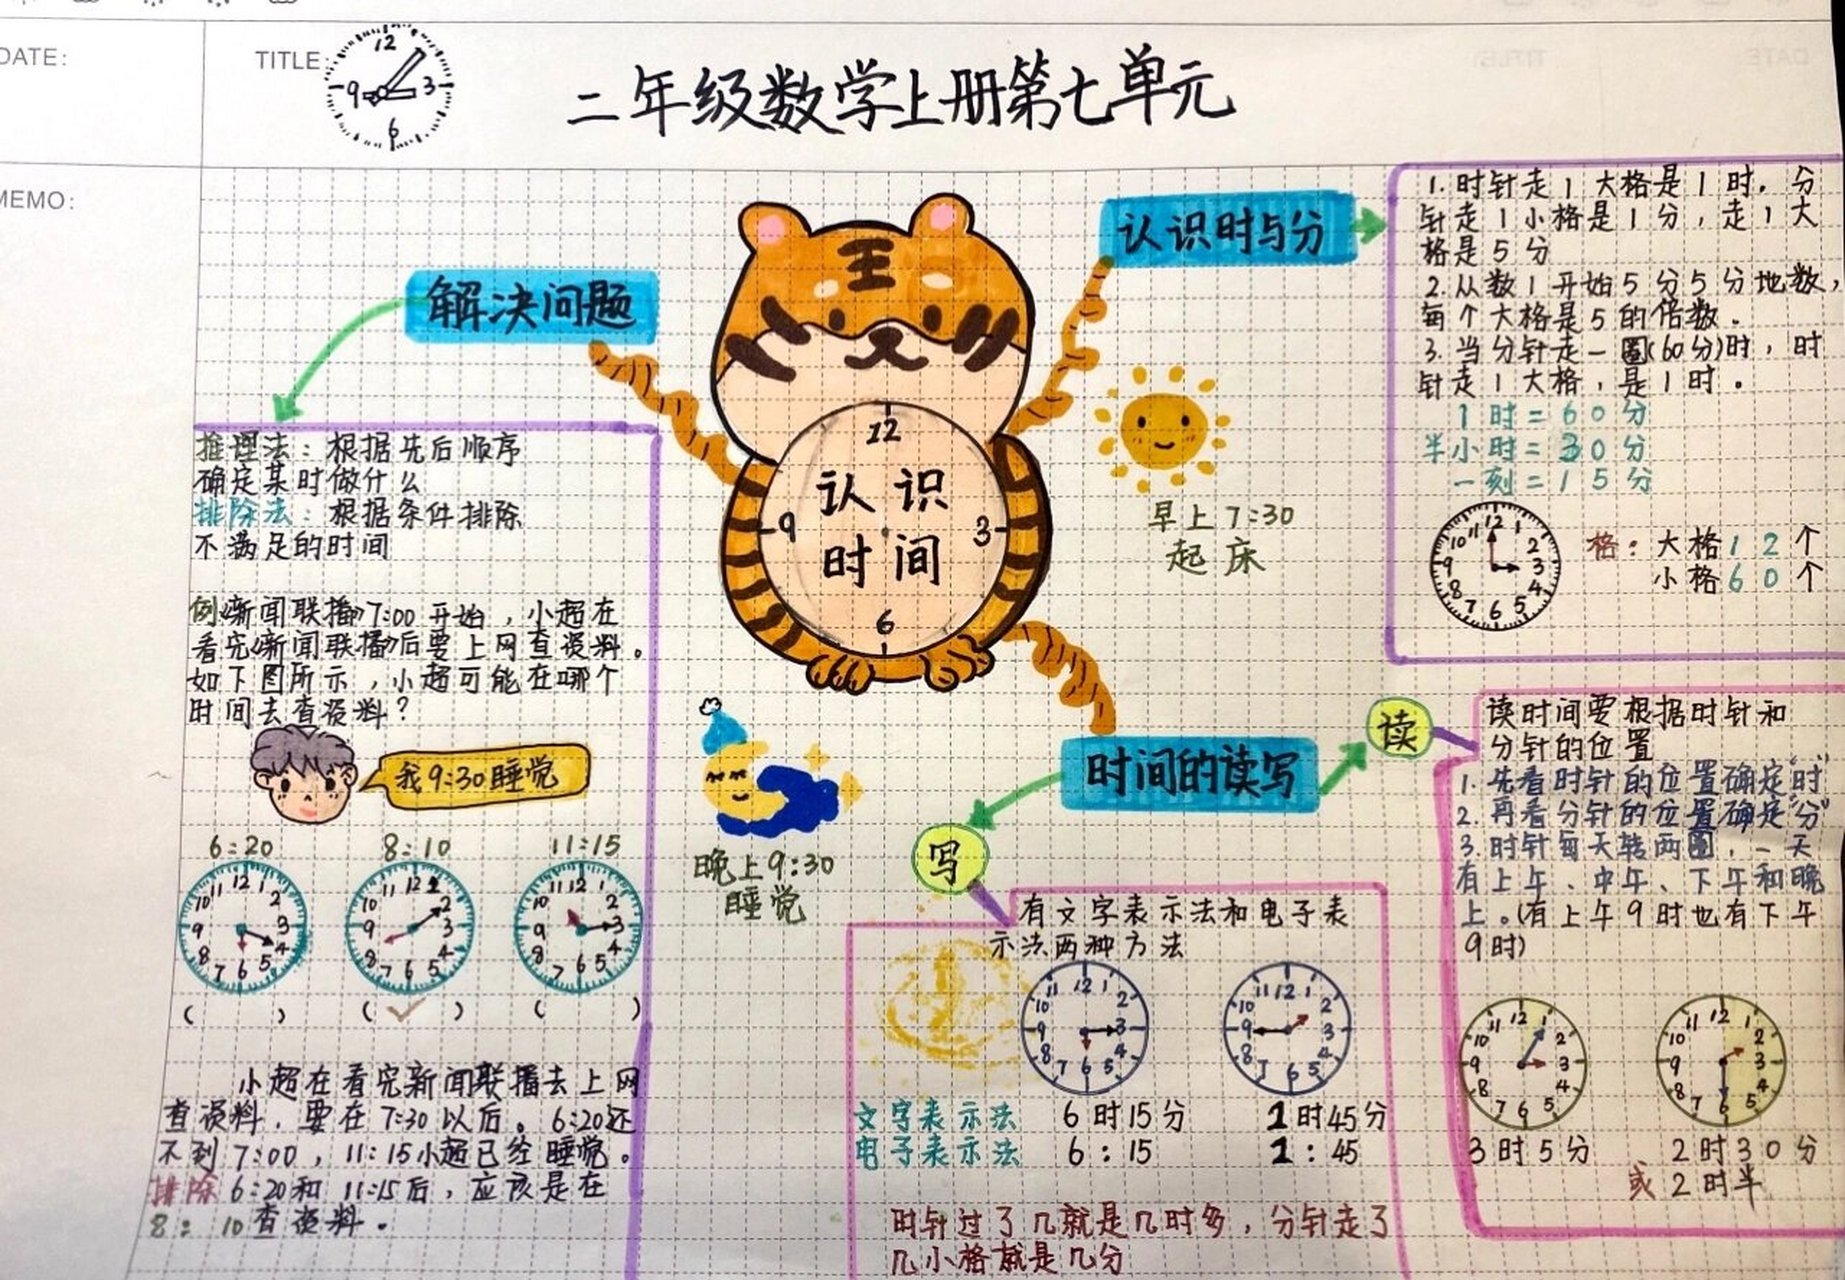 DATE:
TITLE:
12
9 3
6
二年级数学上册第七单元
MEMO:
解决问题
推理法：根据先后顺序
确定某时做什么
排除法：根据条件排除
不满足的时间
例《新闻联播》7:00开始，小超在
看完《新闻联播》后要上网查资料。
如下图所示，小超可能在哪个
时间去查资料？
我9:30睡觉
6:20 8:10 11:15
12 1 2 3 4 5 6 7 8 9 10 11
12 1 2 3 4 5 6 7 8 9 10 11
12 1 2 3 4 5 6 7 8 9 10 11
（ ） （✓） （ ）
小超在看完新闻联播去上网
查资料，要在7:30以后。6:20还
不到7:00，11:15小超已经睡觉。
排除6:20和11:15后，应该是在
8:10查资料。
王
12
认识
9 3
时间
6
认识时与分
1.时针走1大格是1时。分
针走1小格是1分，走1大
格是5分
2.从数1开始5分5分地数，
每个大格是5的倍数。
3.当分针走一圈(60分)时，时
针走1大格，是1时。
1时=60分
半小时=30分
一刻=15分
12 1 2 3 4 5 6 7 8 9 10 11
格：大格12个
小格60个
早上7:30
起床
晚上9:30
睡觉
时间的读写
写
有文字表示法和电子表
示法两种方法
12 1 2 3 4 5 6 7 8 9 10 11
12 1 2 3 4 5 6 7 8 9 10 11
文字表示法 6时15分 1时45分
电子表示法 6:15 1:45
时针过了几就是几时多，分针走了
几小格就是几分
读
读时间要根据时针和
分针的位置
1.先看时针的位置确定"时"
2.再看分针的位置确定"分"
3.时针每天转两圈，一天
有上午、中午、下午和晚
上。(有上午9时也有下午
9时)
12 1 2 3 4 5 6 7 8 9 10 11
12 1 2 3 4 5 6 7 8 9 10 11
3时5分 2时30分
或2时半